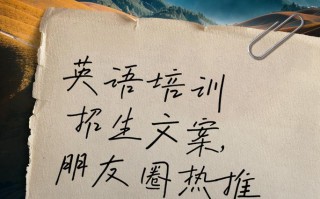 英语培训
招生文案,
朋友圈热推